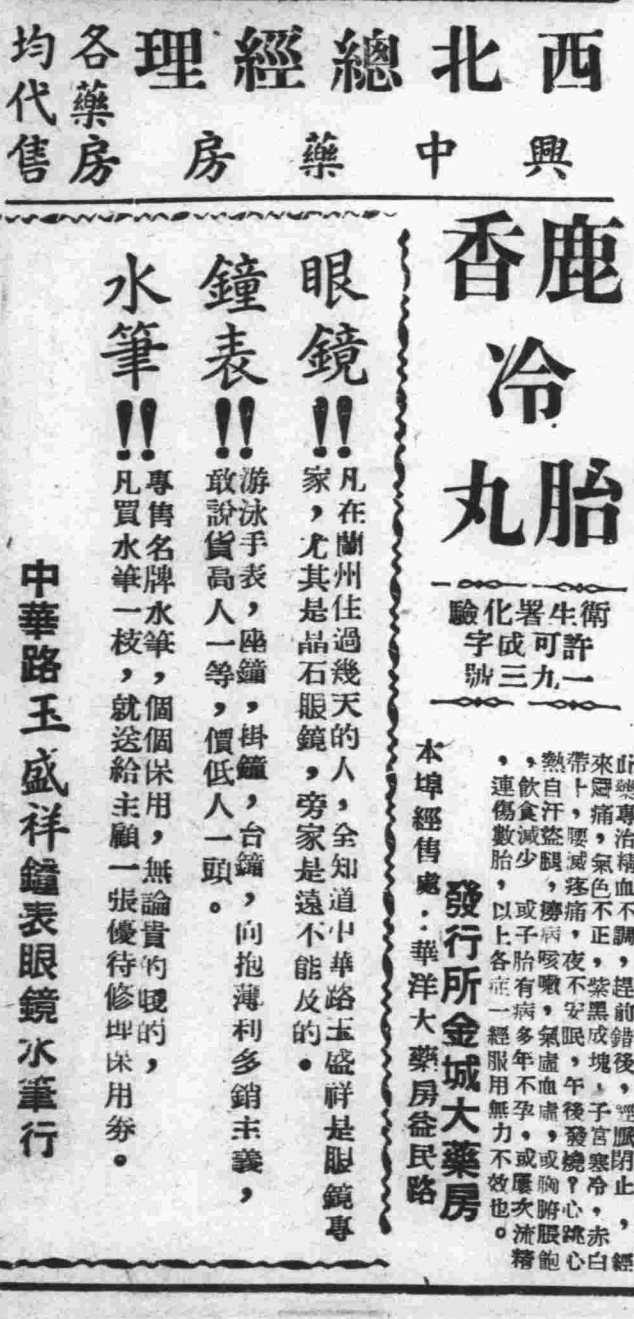 西北總經理
興中藥房
各藥房
均代售
鹿香
冷
胎丸
衛生署化驗
許可成字
一九三號
此藥專治精血不調，趕前錯後，經脈閉止，經
來腹痛，氣色不正，紫黑成塊，子宮寒冷，赤白
帶下，腰滅疼痛，夜不安眠，午後發燒？心跳心
熱自汗盜腿，癆病咳嗽，氣虛血虛，或胸腑脹飽
，飲食減少　或子胎有病多年不孕，或屢次流精
，連傷數胎，以上各症一經服用無力不效也。
發行所金城大藥房
本埠經售處：華洋大藥房益民路
眼鏡!!
凡在蘭州住過幾天的人，全知道中華路玉盛祥是眼鏡專
家，尤其是晶石眼鏡，旁家是遠不能及的。
鐘表!!
游泳手表，座鐘，掛鐘，台鐘，向抱薄利多銷主義，
敢說貨高人一等，價低人一頭。
水筆!!
專售名牌水筆，個個保用，無論貴的賤的，
凡買水筆一枝，就送給主顧一張優待修理保用券。
中華路玉盛祥鐘表眼鏡水筆行